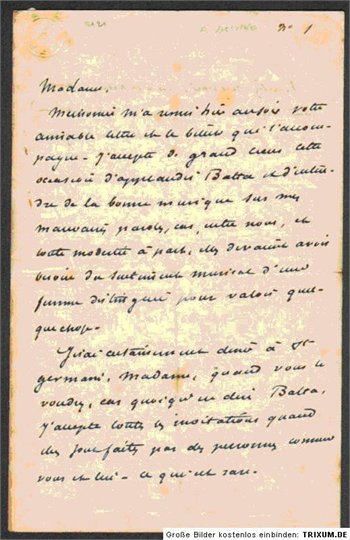 Madame,
m'a remis hier au soir votre
aimable lettre et le billet qui l'accom-
pagne. J'accepte de grand cœur cette
occasion d'applaudir Batta et d'enten-
dre de la bonne musique sur mes
mauvaises paroles, car, entre nous, et
toute modestie à part, elles devaient avoir
besoin du sentiment musical d'une
femme distinguée pour valoir quel-
que chose.
J'irai certainement dîner à St
germain, Madame, quand vous le
voudrez, car quoiqu'en dise Batta,
j'accepte toutes les invitations quand
elles sont faites par des personnes comme
vous et lui - ce qui est rare.
Große Bilder kostenlos einbinden: TRIXUM.DE